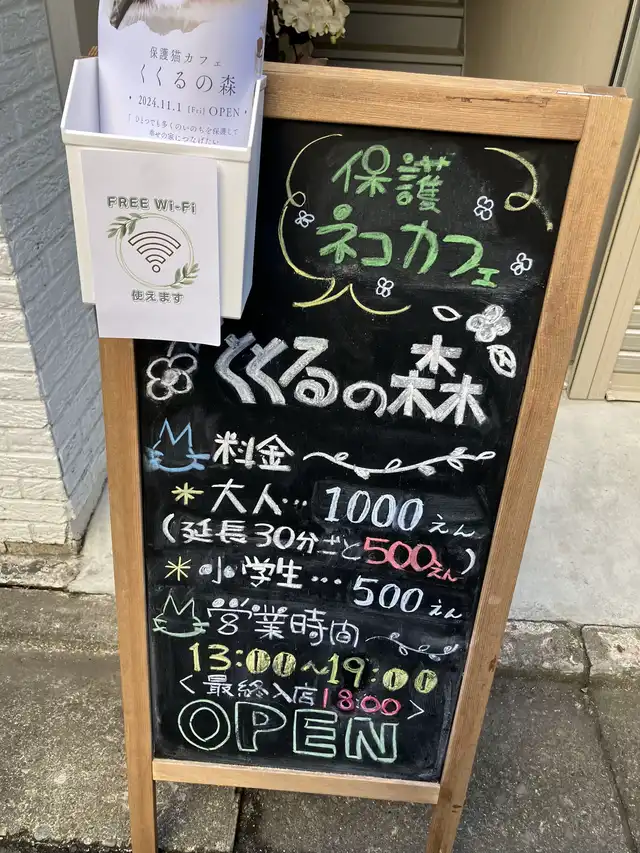 保護猫カフェ
くくるの森
・2024.11.1 [Fri] OPEN・
「ひとつでも多くのいのちを保護して
幸せの家につなげたい
FREE Wi-Fi
使えます
保護
ネコカフェ
くくるの森
料金
＊大人…1000えん
(延長30分ごと500えん)
＊小学生…500えん
営業時間
13:00～19:00
<最終入店18:00>
OPEN